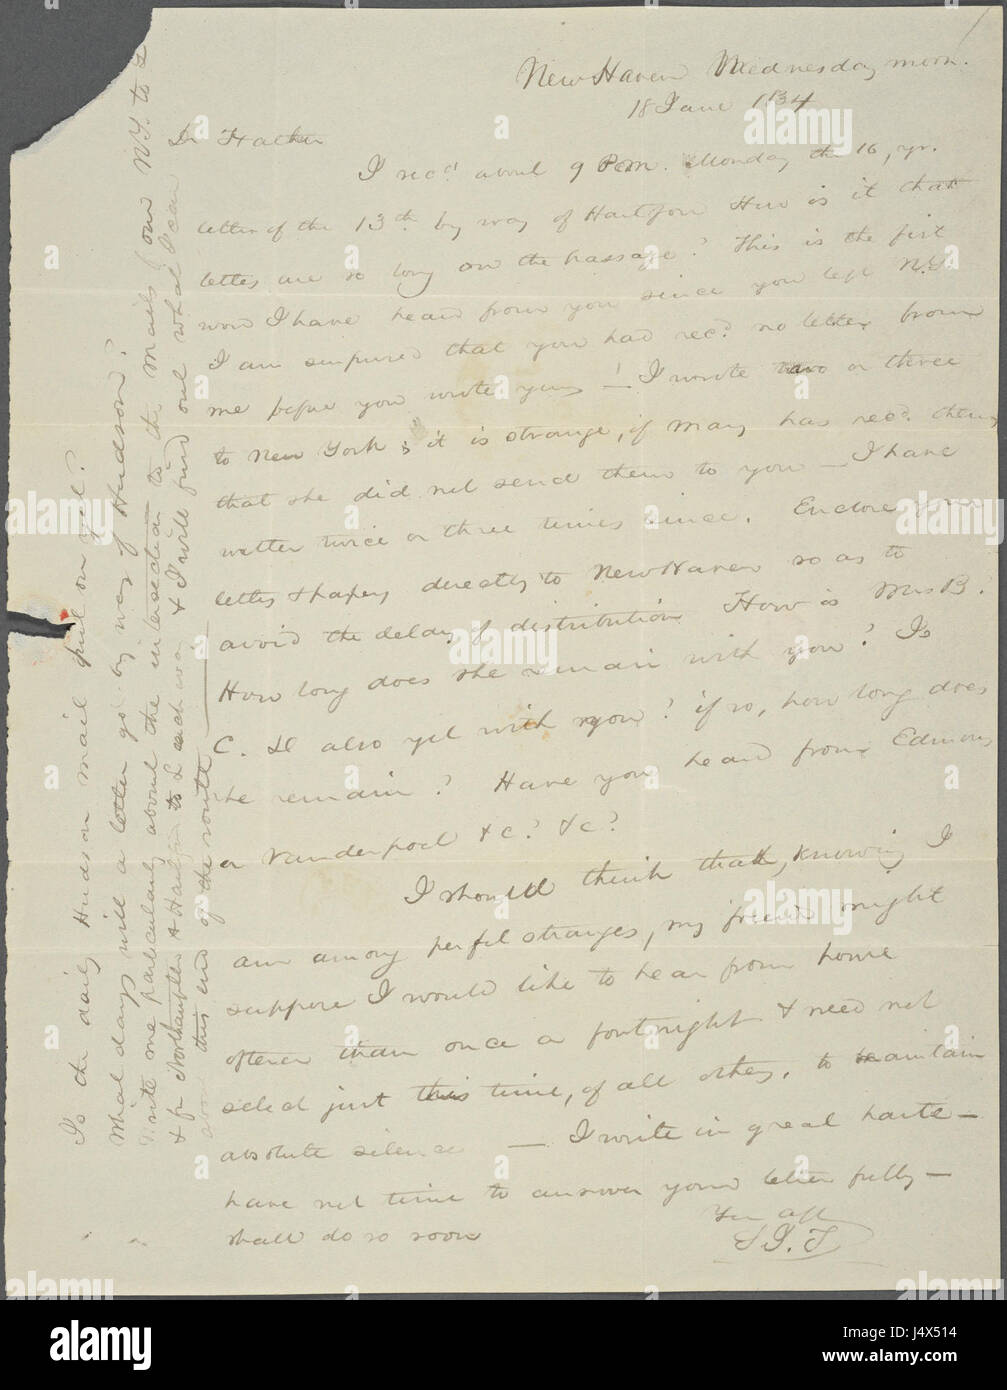 New Haven Wednesday morn.
18 June 1834
Dr Father
I recd about 9 P.M. Monday the 16, yr.
letter of the 13th by way of Hartford How is it that
letters are so long on the passage? This is the first
word I have heard from you since you left N.Y.
I am surprised that you had recd no letter from
me before you wrote yours! — I wrote two or three
to New York & it is strange, if Mary has recd them
that she did not send them to you — I have
written twice or three times since. Enclose your
letters & papers directly to New Haven so as to
avoid the delay of distribution How is Mrs B.
How long does she remain with you? Is
C. also yet with you? if so, how long does
he remain? Have you heard from Edmonds
or Vanderpoel &c? &c?
I should think that, knowing I
am among perfect strangers, my friends might
suppose I would like to hear from home
oftener than once a fortnight & need not
select just this time, of all others, to maintain
absolute silence — I write in great haste —
have not time to answer your letter fully —
shall do so soon
Yrs aff
S J. T
Is the daily Hudson mail put on yet?
What days will a letter go by way of Hudson?
Write me particularly about the intersection to the mails from N.Y. to
& fr Northampton & Hartford to each way & I will find out what I can
about this end of the route
alamy
Image ID: J4X514
www.alamy.com